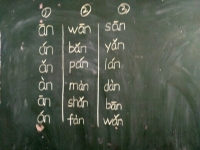 ① ② ③
ān wān sān
án bān yán
ǎn pán lán
àn màn dàn
ān shān bān
án fàn wǎn